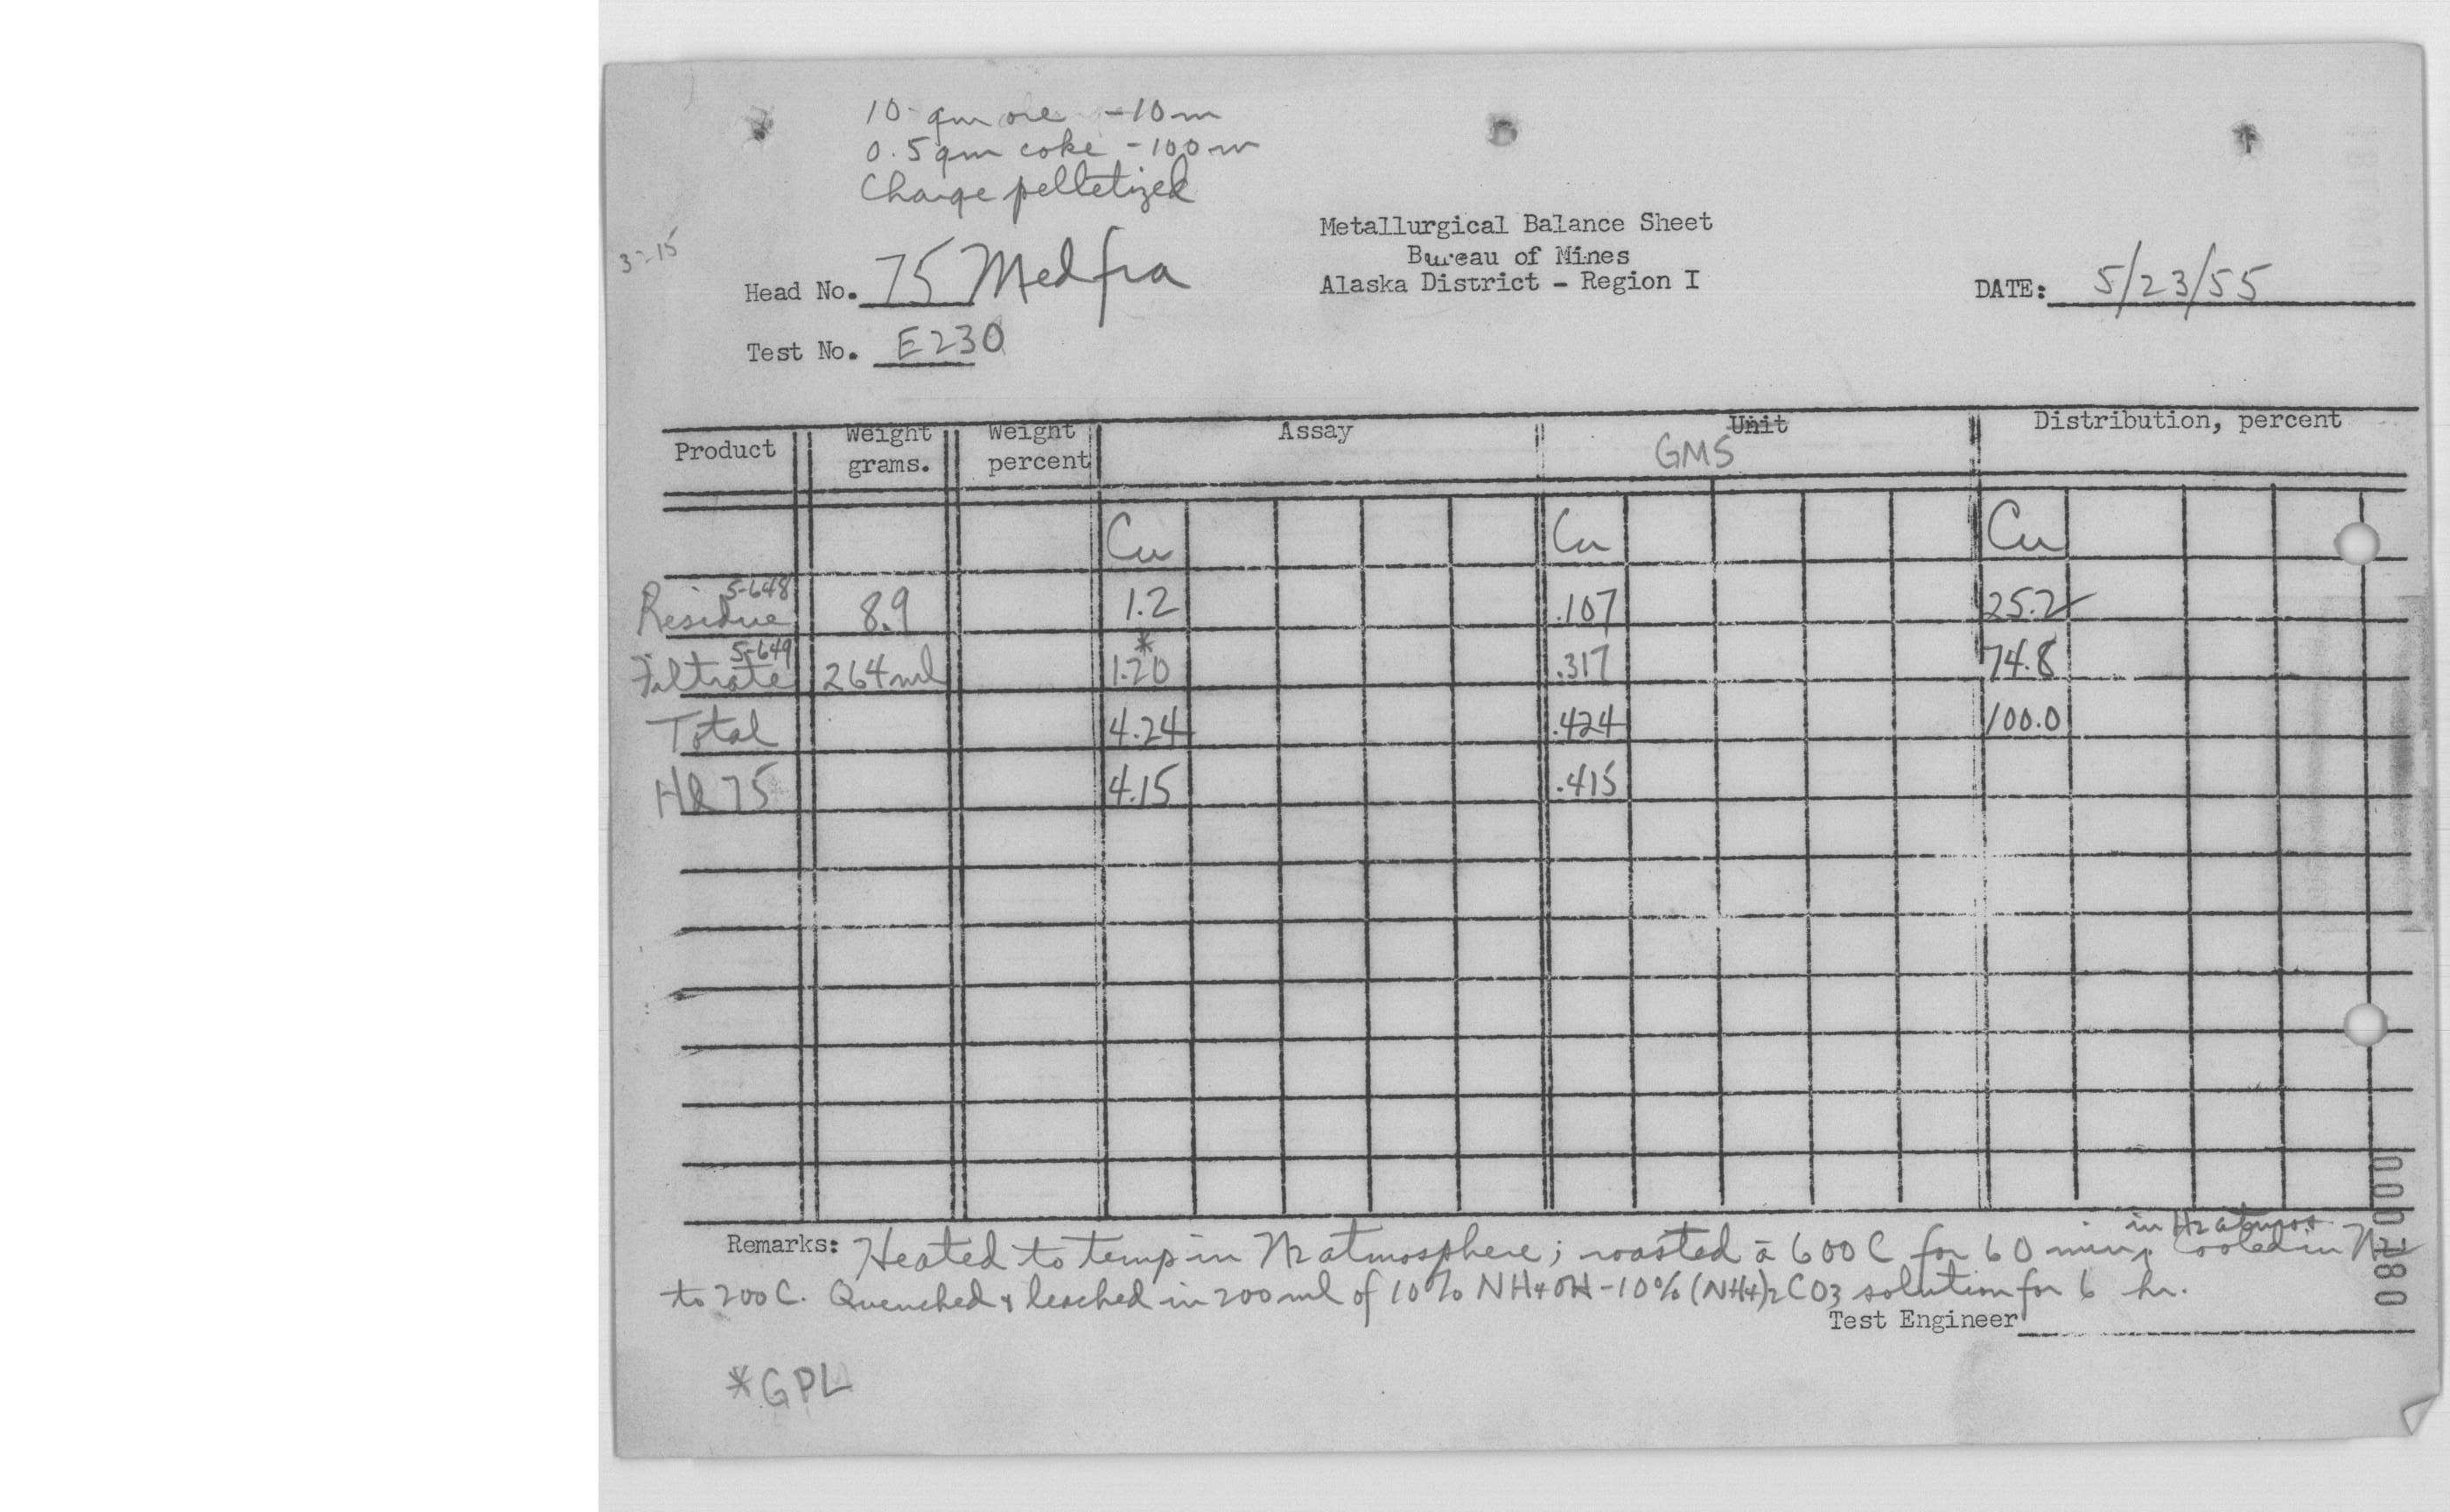 10 gm ore -10m
0.5 gm coke -100m
Charge pelletized
3-15
Metallurgical Balance Sheet
Bureau of Mines
Alaska District - Region I
Head No. 75 Medfra
DATE: 5/23/55
Test No. E230
Product Weight grams. Weight percent Assay Unit GMS Distribution, percent
Cu Cu Cu
Residue S-648 8.9 1.2 .107 25.2
Filtrate S-649 264 ml 1.20* .317 74.8
Total 4.24 .424 100.0
Hd 75 4.15 .415
Remarks: Heated to temp in N2 atmosphere; roasted a 600 C for 60 min in H2 atmos. Cooled in N2
to 200 C. Quenched & leached in 200 ml of 10% NH4OH-10% (NH4)2CO3 solution for 6 hr.
Test Engineer
*GPL